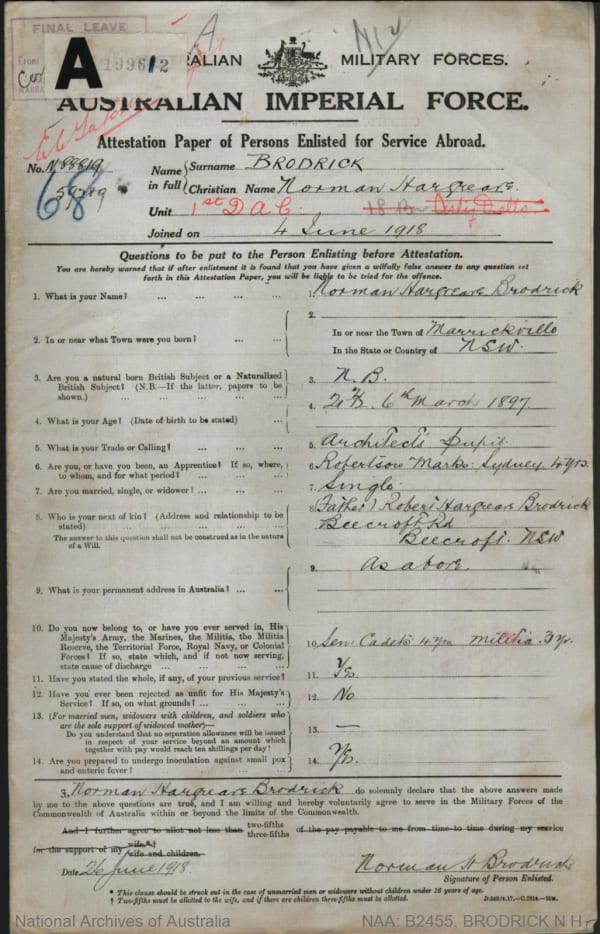 FINAL LEAVE
A
A
199612
N12
RALIAN MILITARY FORCES.
AUSTRALIAN IMPERIAL FORCE.
Attestation Paper of Persons Enlisted for Service Abroad.
No. N88819
59719
68
Name in full
Surname BRODRICK
Christian Name Norman Hargreave
Unit 1st D.A.C. 18 Derby Dolls
Joined on 4 June 1918
Questions to be put to the Person Enlisting before Attestation.
You are hereby warned that if after enlistment it is found that you have given a wilfully false answer to any question set
forth in this Attestation Paper, you will be liable to be tried for the offence.
1. What is your Name? ... ... ... ... 1. Norman Hargreave Brodrick
2. In or near what Town were you born? ... ...
2.
In or near the Town of Marrickville
In the State or Country of NSW.
3. Are you a natural born British Subject or a Naturalized
British Subject? (N.B.—If the latter, papers to be
shown.) ... ... ... ...
3. N.B.
4. What is your Age? (Date of birth to be stated) ... 4. 21 3/12. 6th March 1897
5. What is your Trade or Calling? ... ... ... 5. Architects Pupil
6. Are you, or have you been, an Apprentice? If so, where,
to whom, and for what period? ... ... ...
6. Robertson Marks: Sydney 4 yrs.
7. Are you married, single, or widower? ... ... 7. Single
8. Who is your next of kin? (Address and relationship to be
stated) ... ... ... ...
The answer to this question shall not be construed as in the nature
of a Will.
8. (Father) Robert Hargreave Brodrick
Beecroft Rd
Beecroft. NSW
9. What is your permanent address in Australia? ... ...
9. As above.
10. Do you now belong to, or have you ever served in, His
Majesty's Army, the Marines, the Militia, the Militia
Reserve, the Territorial Force, Royal Navy, or Colonial
Forces? If so, state which, and if not now serving,
state cause of discharge ... ... ...
10. Sen: Cadets 4 yrs Militia 3 yr.
11. Have you stated the whole, if any, of your previous service? 11. Yes.
12. Have you ever been rejected as unfit for His Majesty's
Service? If so, on what grounds? ... ...
12. No
13. (For married men, widowers with children, and soldiers who
are the sole support of widowed mother)—
Do you understand that no separation allowance will be issued
in respect of your service beyond an amount which
together with pay would reach ten shillings per day?
13. —
14. Are you prepared to undergo inoculation against small pox
and enteric fever? ... ... ...
14. Yes.
I, Norman Hargreave Brodrick do solemnly declare that the above answers made
by me to the above questions are true, and I am willing and hereby voluntarily agree to serve in the Military Forces of the
Commonwealth of Australia within or beyond the limits of the Commonwealth.
And I further agree to allot not less than two-fifths three-fifths of the pay payable to me from time to time during my service
for the support of my wife*† wife and children.
Date 26 June 1918
Norman H Brodrick
Signature of Person Enlisted.
* This clause should be struck out in the case of unmarried men or widowers without children under 16 years of age.
† Two-fifths must be allotted to the wife, and if there are children three-fifths must be allotted.
National Archives of Australia NAA: B2455, BRODRICK N H